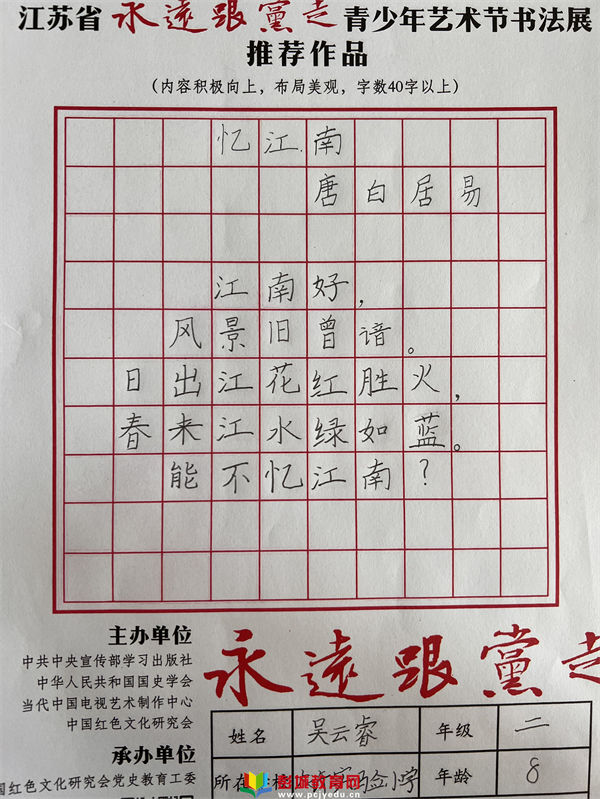 江苏省永遠跟黨走青少年艺术节书法展
推荐作品
（内容积极向上，布局美观，字数40字以上）
忆江南
唐白居易
江南好，
风景旧曾谙。
日出江花红胜火，
春来江水绿如蓝。
能不忆江南？
主办单位
中共中央宣传部学习出版社
中华人民共和国国史学会
当代中国电视艺术制作中心
中国红色文化研究会
承办单位
国红色文化研究会党史教育工委
永遠跟黨走
姓名 吴云睿 年级 二
所在 验小学 年龄 8
彭城教育网
www.pcjyedu.cn